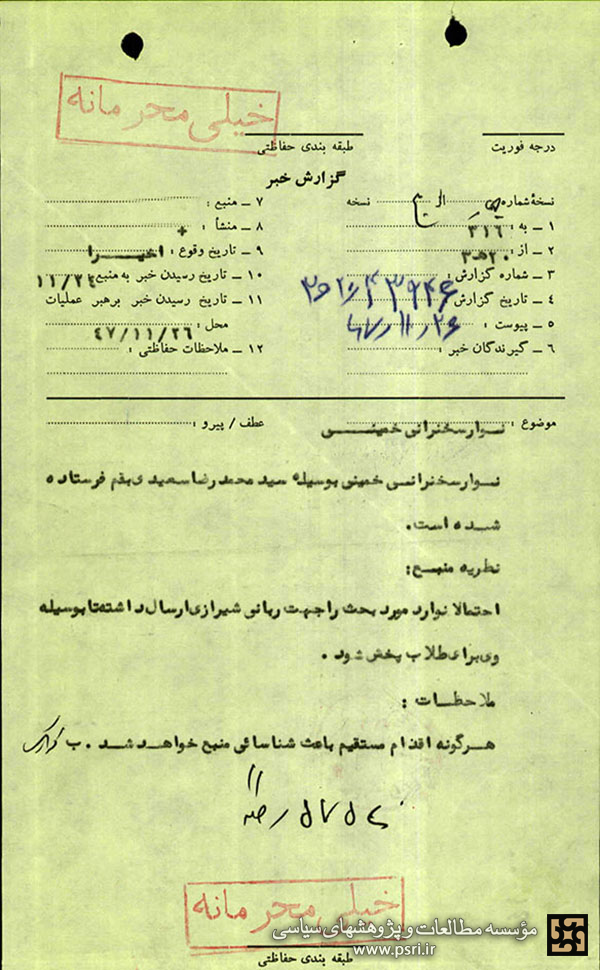 خیلی محرمانه
درجه فوریت
طبقه بندی حفاظتی
گزارش خبر
نسخهٔ شماره از نسخه
۱ ــ به : ۳۱۶
۲ ــ از : ۲۰ ه‍ ۳
۳ ــ شماره گزارش :
۴ ــ تاریخ گزارش
۵ ــ پیوست :
۶ ــ گیرندگان خبر :
۷ ــ منبع :
۸ ــ منشأ :
۹ ــ تاریخ وقوع : اخیرا
۱۰ ــ تاریخ رسیدن خبر به منبع ۱۱/۲۴
۱۱ ــ تاریخ رسیدن خبر برهبر عملیات
محل : ۴۷/۱۱/۲۶
۱۲ ــ ملاحظات حفاظتی :
موضوع : نوار سخنرانی خمینی
عطف / پیرو :
نوار سخنرانی خمینی بوسیله سید محمد رضا سعیدی بقم فرستاده
شده است.
نظریه منبع:
احتمالا نوارد مورد بحث را جهت ربانی شیرازی ارسال داشته تا بوسیله
وی برای طلاب پخش شود .
ملاحظات :
هرگونه اقدام مستقیم باعث شناسائی منبع خواهد شد . ب
خیلی محرمانه
مؤسسه مطالعات و پژوهشهای سیاسی
www.psri.ir
طبقه بندی حفاظتی